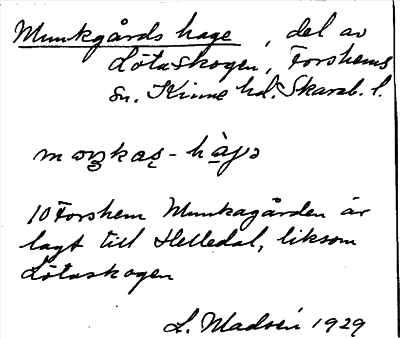 Munkgårds hage, del av
Lötaskogen, Forshems
sn. Kinne hd. Skarab. l.
10 Forshem Munkagården är
lagt till Helledal, liksom
Lötaskogen
L. Madsén 1929